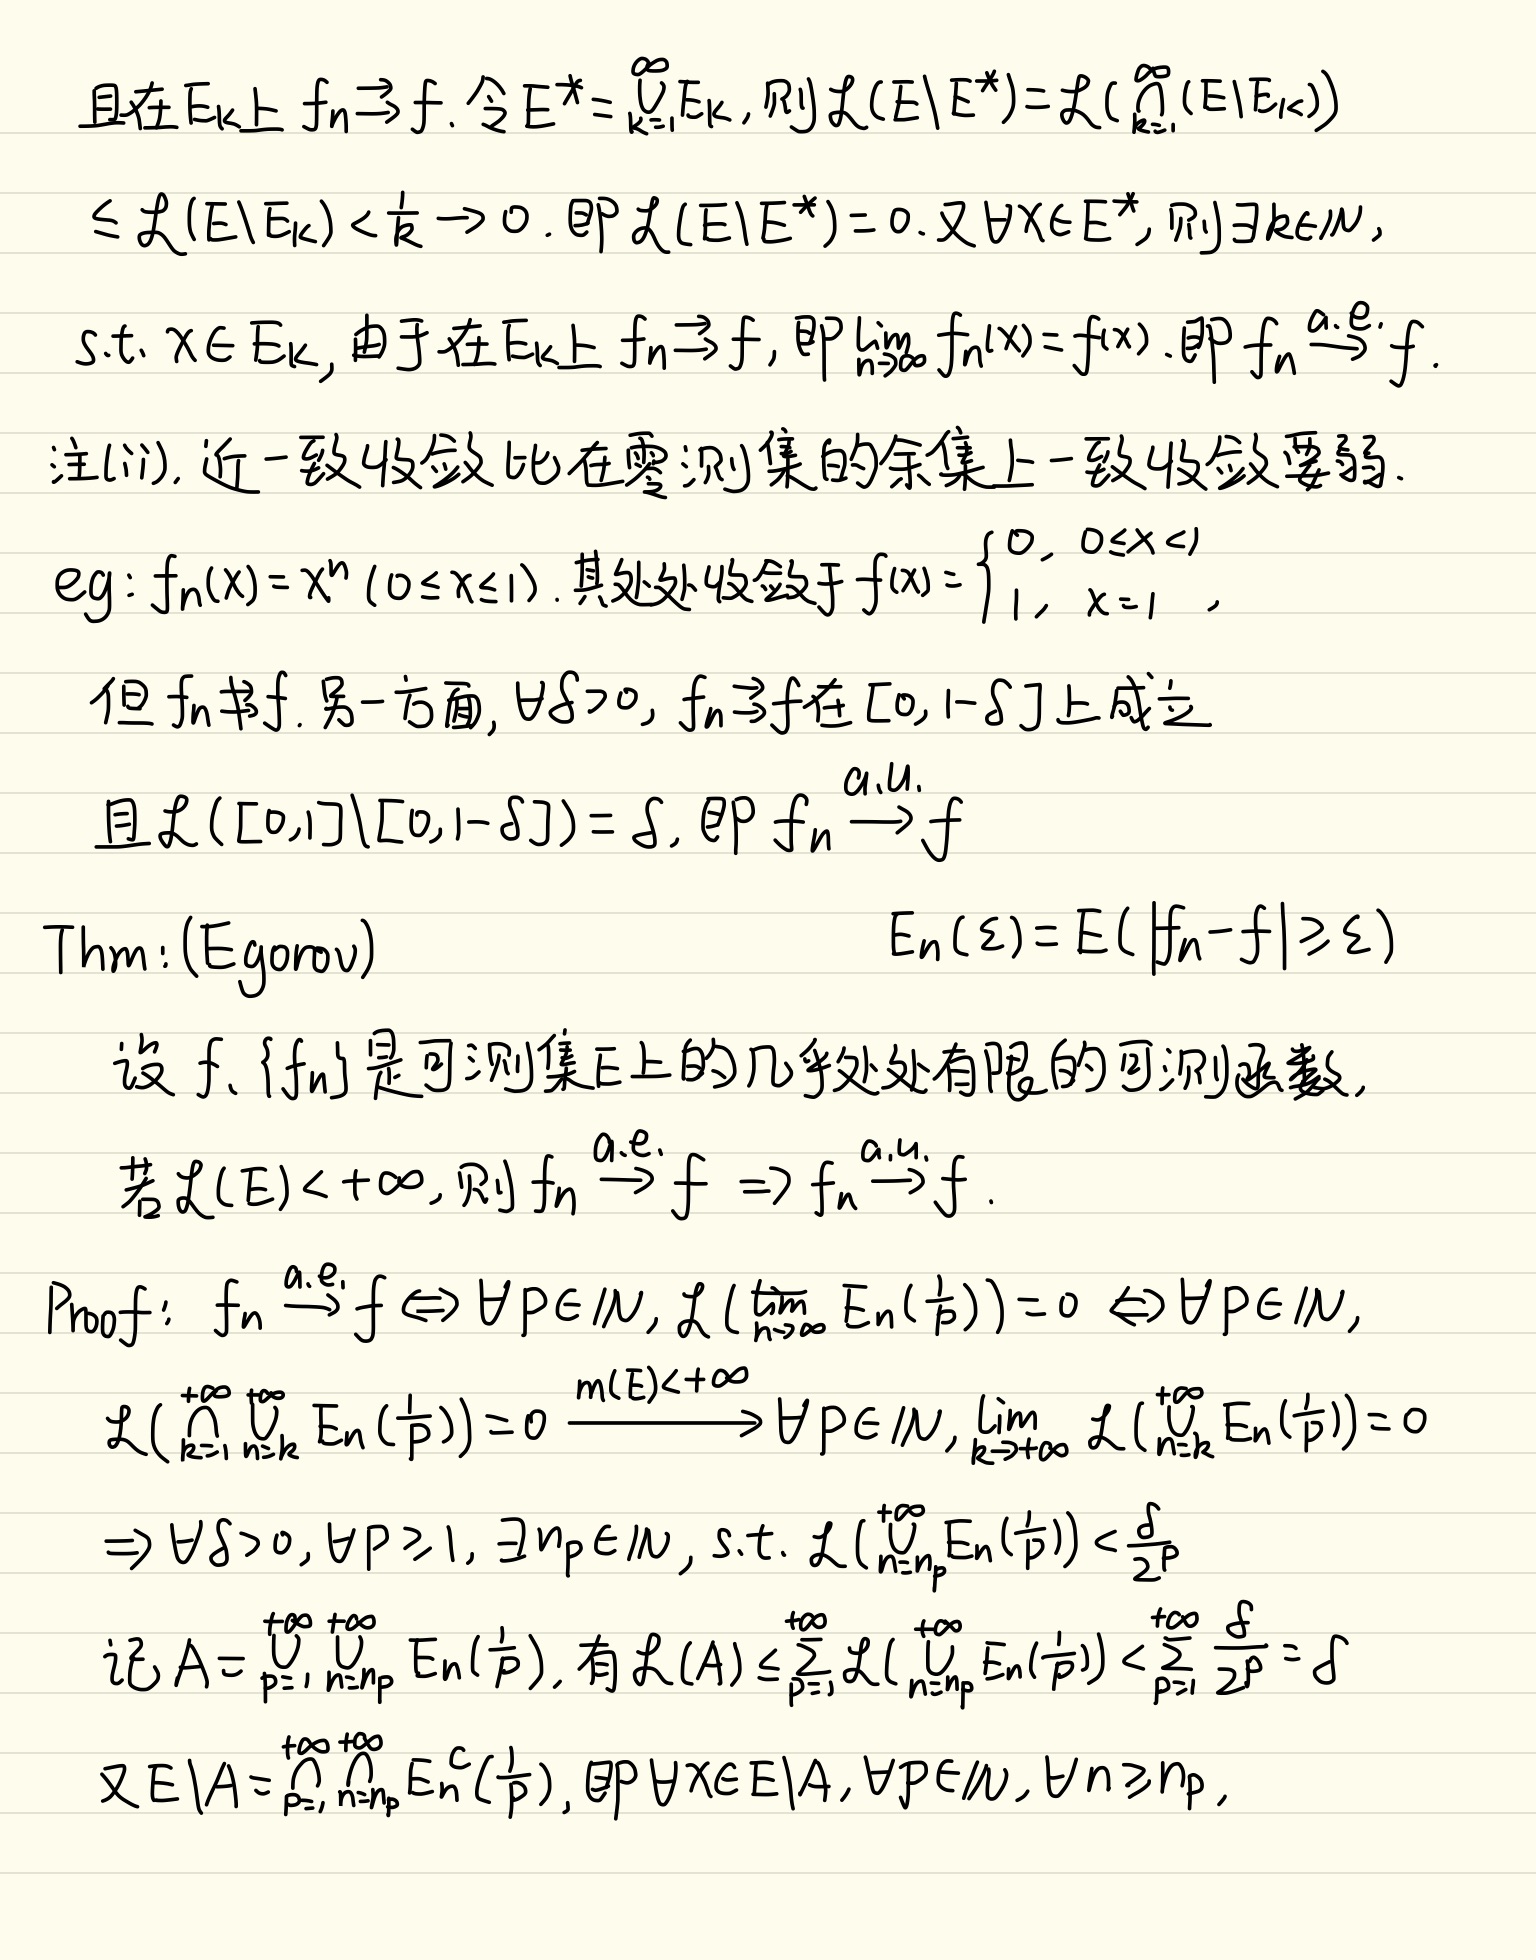 且在 E_k 上 f_n ⇉ f. 令 E^* = ⋃_{k=1}^{∞} E_k, 则 ℒ(E\E^*) = ℒ(⋂_{k=1}^{∞}(E\E_k))
≤ ℒ(E\E_k) < 1/k → 0. 即 ℒ(E\E^*) = 0. 又 ∀x∈E^*, 则 ∃k∈ℕ,
s.t. x∈E_k, 由于在 E_k 上 f_n ⇉ f, 即 lim_{n→∞} f_n(x) = f(x). 即 f_n \xrightarrow{a.e.} f.
注(ii). 近一致收敛比在零测集的余集上一致收敛要弱.
eg: f_n(x) = x^n (0≤x≤1). 其处处收敛于 f(x) = { 0, 0≤x<1
1, x=1 ,
但 f_n \not⇉ f. 另一方面, ∀δ>0, f_n ⇉ f 在 [0,1-δ] 上成立
且 ℒ([0,1]\[0,1-δ]) = δ, 即 f_n \xrightarrow{a.u.} f
Thm: (Egorov) E_n(ε) = E(|f_n - f| ≥ ε)
设 f、{f_n} 是可测集 E 上的几乎处处有限的可测函数,
若 ℒ(E) < +∞, 则 f_n \xrightarrow{a.e.} f ⇒ f_n \xrightarrow{a.u.} f.
Proof: f_n \xrightarrow{a.e.} f ⇔ ∀p∈ℕ, ℒ(\overline{lim}_{n→∞} E_n(1/p)) = 0 ⇔ ∀p∈ℕ,
ℒ(⋂_{k=1}^{+∞} ⋃_{n=k}^{+∞} E_n(1/p)) = 0 \xrightarrow{m(E)<+∞} ∀p∈ℕ, lim_{k→+∞} ℒ(⋃_{n=k}^{+∞} E_n(1/p)) = 0
⇒ ∀δ>0, ∀p≥1, ∃n_p∈ℕ, s.t. ℒ(⋃_{n=n_p}^{+∞} E_n(1/p)) < δ/2^p
记 A = ⋃_{p=1}^{+∞} ⋃_{n=n_p}^{+∞} E_n(1/p), 有 ℒ(A) ≤ ∑_{p=1}^{+∞} ℒ(⋃_{n=n_p}^{+∞} E_n(1/p)) < ∑_{p=1}^{+∞} δ/2^p = δ
又 E\A = ⋂_{p=1}^{+∞} ⋂_{n=n_p}^{+∞} E_n^c(1/p), 即 ∀x∈E\A, ∀p∈ℕ, ∀n≥n_p,